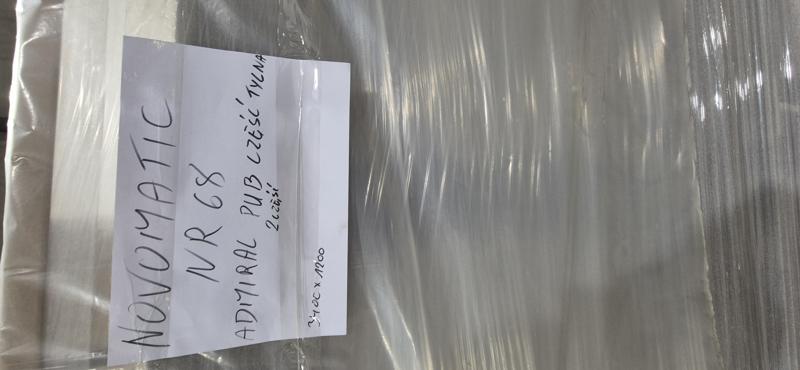 NOVOMATIC
NR 68
ADMIRAL PUB CZĘŚĆ TYLNA
2 CZĘŚĆ
x 1200